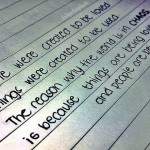 le were created to be loved
hings were created to be used
The reason why the world is in CHAOS
is because things are being lov
and people are